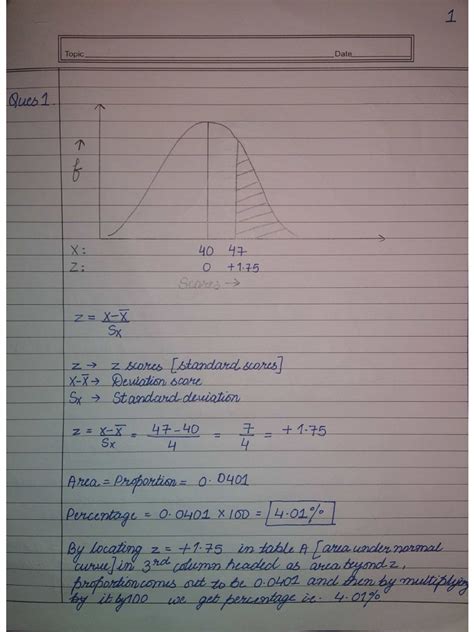 1
Topic Date
Ques 1.
↑
f
X: 40 47
Z: 0 +1.75
Scores →
z = X-X̄ / Sx
z → z scores [standard scores]
X-X̄ → Deviation score
Sx → Standard deviation
z = X-X̄ / Sx = 47-40 / 4 = 7 / 4 = +1.75
Area = Proportion = 0.0401
Percentage = 0.0401 x 100 = 4.01%
By locating z = +1.75 in table A [area under normal
curve] in 3rd column headed as area beyond z,
proportion comes out to be 0.0401 and then by multiplying
by it by 100 we get percentage i.e. 4.01%